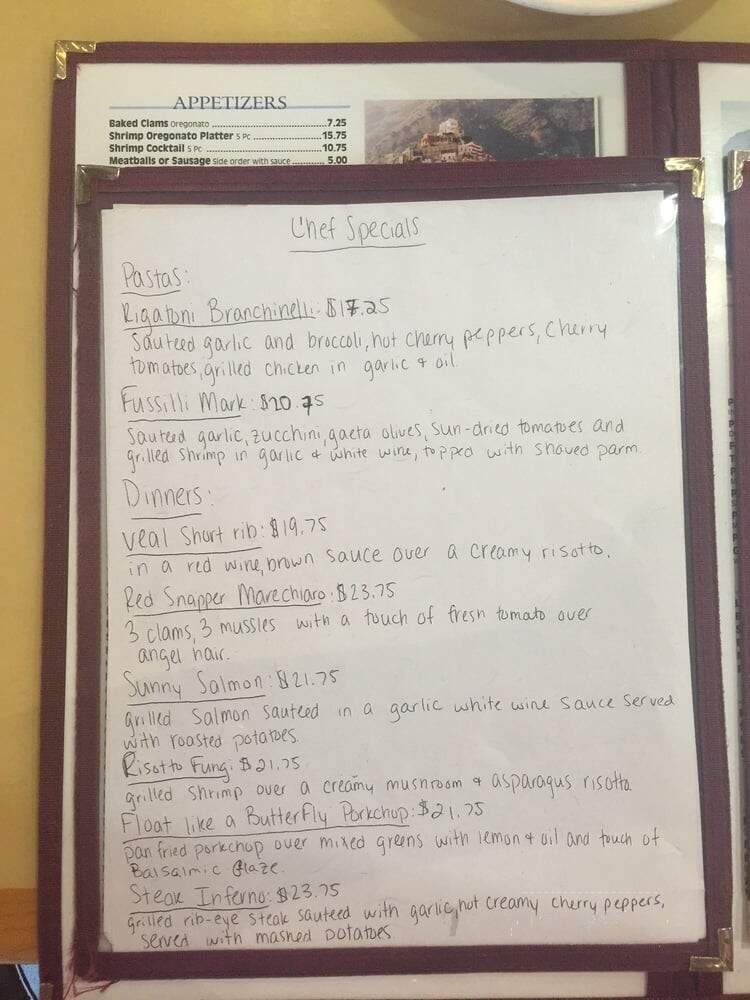 APPETIZERS
Baked Clams Oregonato 7.25
Shrimp Oregonato Platter 5 Pc 15.75
Shrimp Cocktail 5 Pc 10.75
Meatballs or Sausage Side order with sauce 5.00
Chef Specials
Pastas:
Rigatoni Branchinelli: $17.25
Sauteed garlic and broccoli, hot cherry peppers, Cherry
tomatoes, grilled chicken in garlic & oil.
Fussilli Mark: $20.75
Sauterd garlic, zucchini, gaeta olives, Sun-dried tomatoes and
grilled shrimp in garlic & white wine, topped with Shaved parm.
Dinners:
Veal Short rib: $19.75
in a red wine, brown sauce over a creamy risotto.
Red Snapper Marechiaro: $23.75
3 clams, 3 mussles with a touch of fresh tomato over
angel hair.
Sunny Salmon: $21.75
grilled Salmon sauteed in a garlic white wine sauce served
with roasted potatoes.
Risotto Fungi: $21.75
grilled shrimp over a creamy mushroom & asparagus risotto.
Float like a Butterfly Porkchop: $21.75
pan fried porkchop over mixed greens with lemon & oil and touch of
Balsalmic Glaze.
Steak Inferno: $23.75
grilled rib-eye steak sauteed with garlic, hot creamy cherry peppers,
served with mashed potatoes